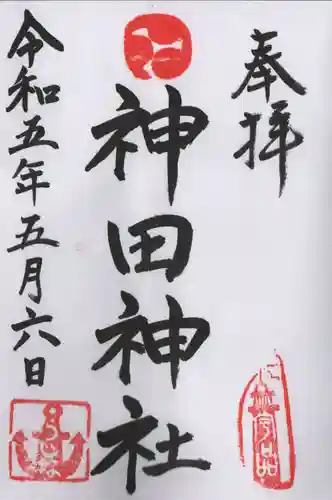 奉拝
神田神社
令和五年五月六日